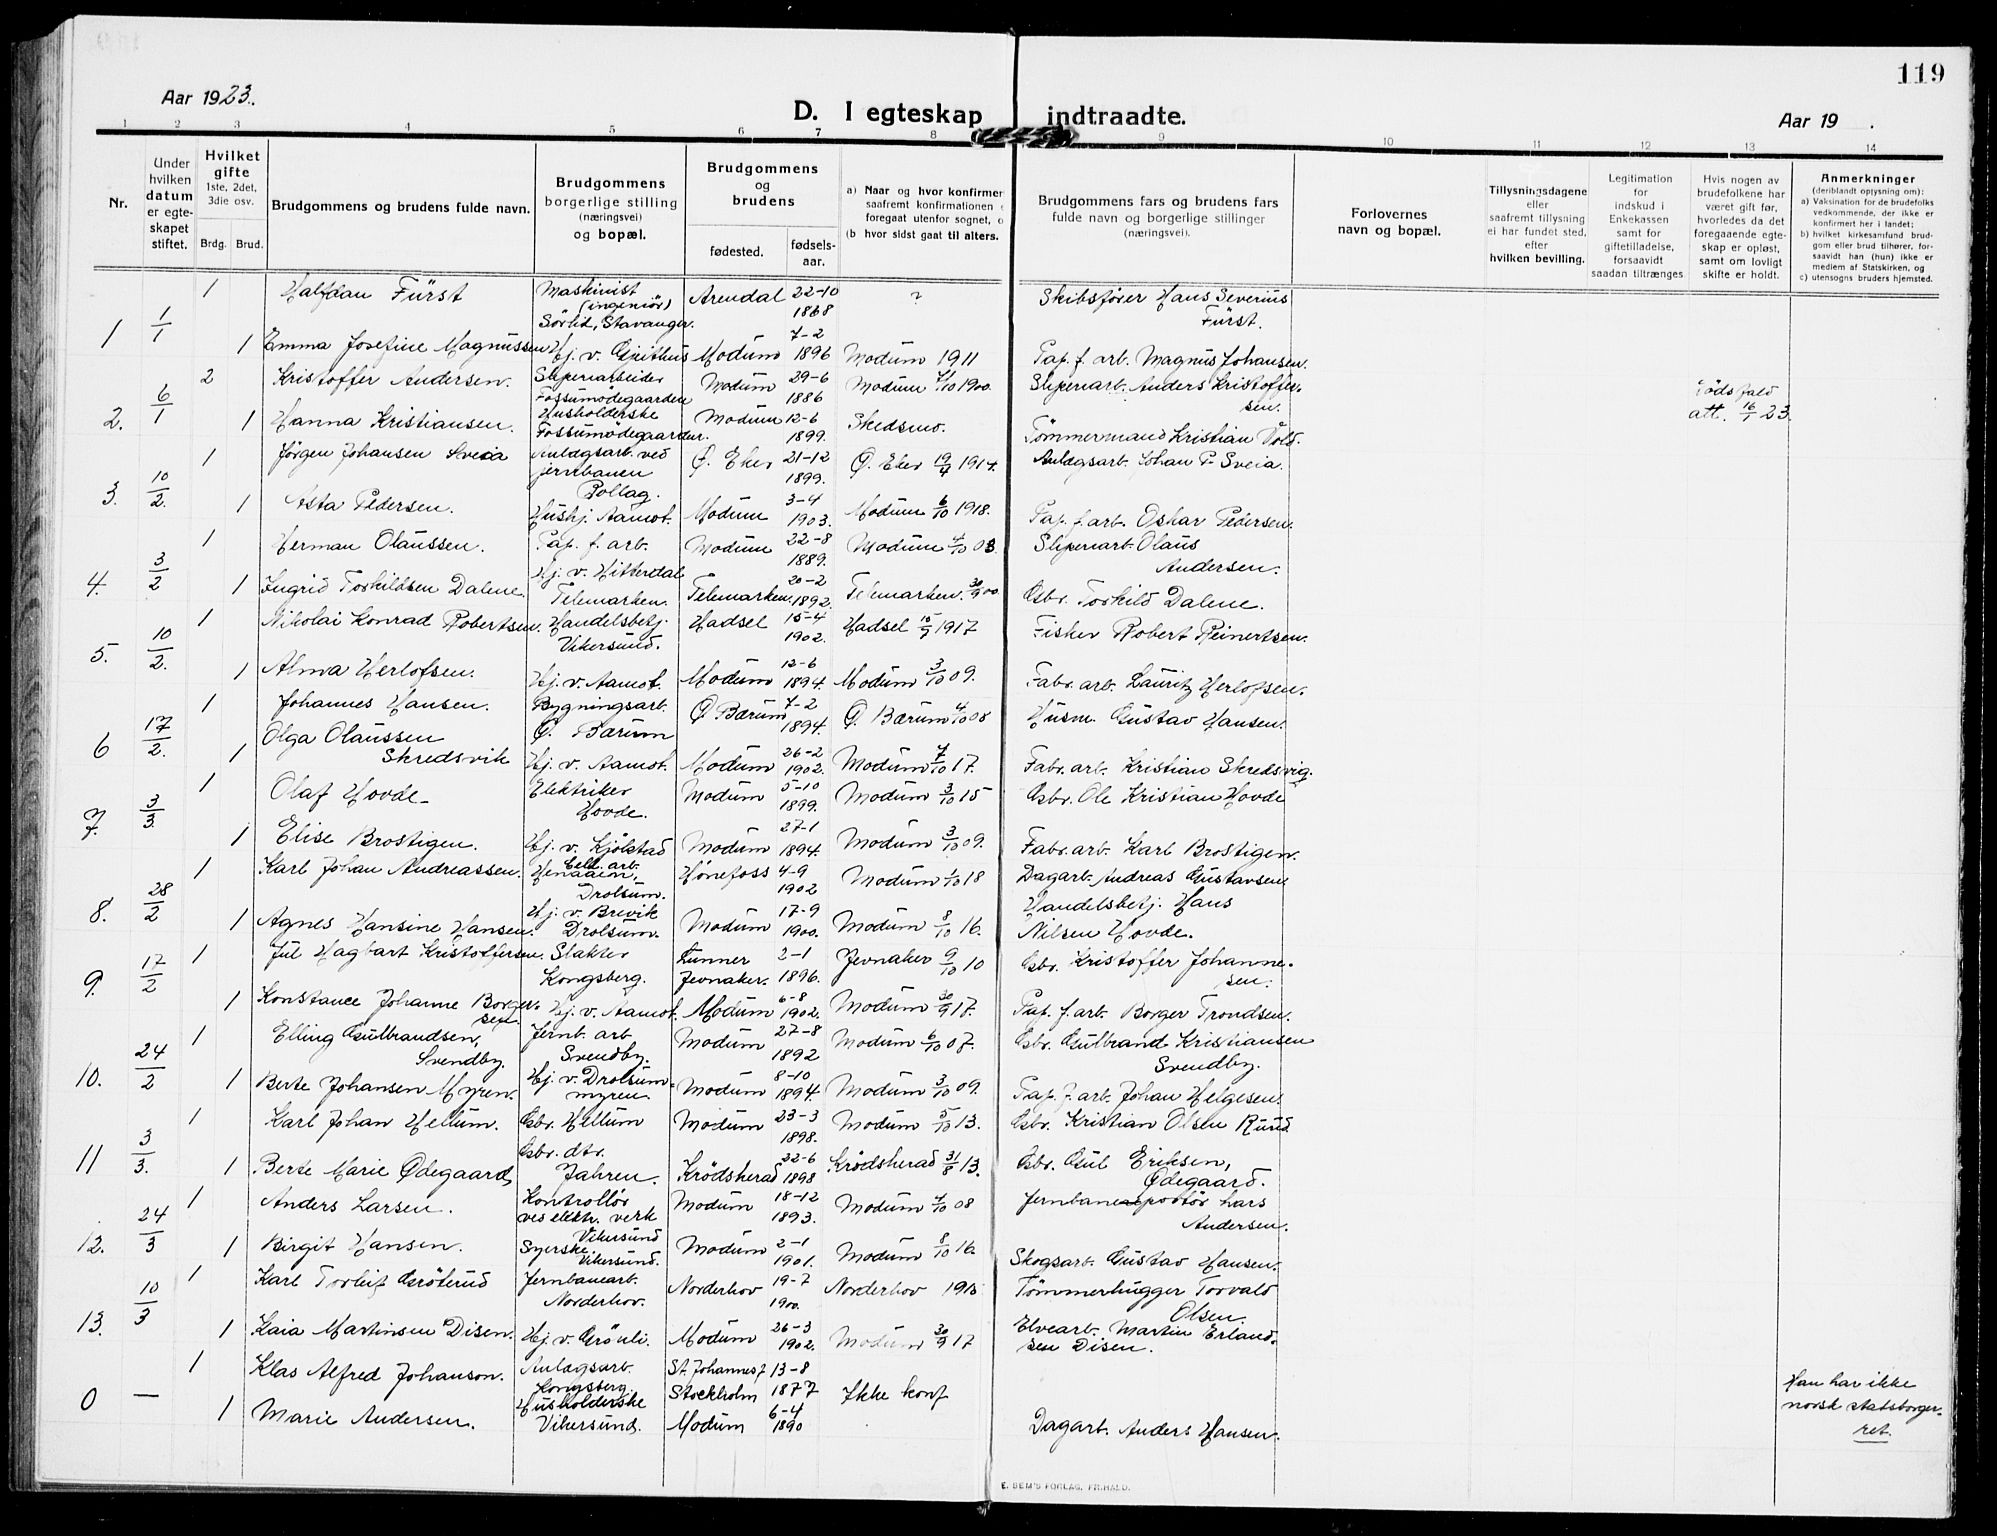 119
Aar 1923.
D. I egteskap indtraadte.
Aar 19 .
1 2 3 4 5 6 7 8 9 10 11 12 13 14
Nr.
Under
hvilken
datum
er egte-
skapet
stiftet.
Hvilket
gifte
1ste, 2det,
3die osv.
Brdg. Brud.
Brudgommens og brudens fulde navn.
Brudgommens
borgerlige stilling
(næringsvei)
og bopæl.
Brudgommens
og
brudens
fødested.
fødsels-
aar.
a) Naar og hvor konfirmer
saafremt konfirmationen
foregaat utenfor sognet, o
(b hvor sidst gaat til alters.
Brudgommens fars og brudens fars
fulde navn og borgerlige stillinger
(næringsvei).
Forlovernes
navn og bopæl.
Tillysningsdagene
eller
saafremt tillysning
ei har fundet sted,
efter
hvilken bevilling.
Legitimation
for
indskud i
Enkekassen
samt for
giftetilladelse,
forsaavidt
saadan tiltrænges
Hvis nogen av
brudefolkene har
været gift før,
hvorledes da det
foregaaende egte-
skap er opløst,
samt om lovligt
skifte er holdt.
Anmerkninger
(deriblandt oplysning om):
a) Vaksination for de brudefolks
vedkommende, der ikke er
konfirmert her i landet;
b) hvilket kirkesamfund brud-
gom eller brud tilhører, for-
saavidt han (hun) ikke er
medlem af Statskirken, og
c) utensogns bruders hjemsted.
1 1/1
1 Halfdan Fürst Maskinist (ingeniør) Sørlid, Stavanger. Arendal 22-10 1868 ? Skibsfører Hans Severius Fürst.
1 Emma Josefine Magnussen Hj. v. Geithus Modum 7-2 1896 Modum 1911 Pap. f. arb. Magnus Johansen.
2. 6/1
2 Kristoffer Andersen. Sliperiarbeider Fossumødegaarden Modum 29-6 1886 Modum 7/10 1900. Sliperiarb. Anders Kristoffersen. Dödsfald att. 16/1 23.
1 Hanna Kristiansen. Husholderske Fossumødegaarden. Modum 12-6 1899. Skedsmo. Tömmermand Kristian Vold.
3. 10/2.
1 Jørgen Johansen Sveia Anlægsarb. ved jernbanen Rollag. Ø. Eker 21-12 1899. Ø. Eker 19/4 1914. Anlægsarb. Johan P. Sveia.
1 Asta Pedersen. Hushj. Aamot. Modum 3-4 1903. Modum 6/10 1918. Pap. f. arb. Oskar Pedersen.
4. 3/2
1 Herman Olaussen. Pap. f. arb. Modum 22-8 1889. Modum 4/10 03. Sliperiarb. Olaus Andersen.
1 Ingrid Torkildsen Dalene. Hj. v. Hitterdal Telemarken. Telemarken. 20-2 1892. Telemarken. 30/9 00. Gbr. Torkild Dalene.
5. 10/2.
1 Nikolai Konrad Robertsen. Handelsbetj. Vikersund. Hadsel 15-4 1902. Hadsel 10/9 1917 Fisker Robert Reinertsen.
1 Alma Herlofsen. Hj. v. Aamot. Modum 12-6 1894. Modum 3/10 09. Fabr. arb. Lauritz Herlofsen.
6 17/2.
1 Johannes Hansen. Bygningsarb. Ø. Bærum Ø. Bærum 7-2 1894. Ø. Bærum 4/10 08 Husm. Gustav Hansen.
1 Olga Olaussen Skredsvik Hj. v. Aamot. Modum 26-2 1902. Modum 7/10 17. Fabr. arb. Kristian Skredsvig.
7. 3/3.
1 Olaf Hovde Elektriker Hovde. Modum 5-10 1899. Modum 3/10 15 Gbr. Ole Kristian Hovde
1 Elise Brostigen. Hj. v. Kjölstad Modum 27-1 1894. Modum 3/10 09. Fabr. arb. Karl Brostigen.
8. 28/2
1 Karl Johan Andreassen. Cell. arb. Henaaen, Drolsum. Hønefoss 4-9 1902 Modum 1/10 18 Dagarb. Andreas Gustavsen
1 Agnes Hansine Hansen. Hj. v. Brevik Drolsum. Modum 17-9 1900. Modum 8/10 16. Handelsbetj. Hans Nilsen Hovde.
9. 17/2
1 Jul Hagbart Kristoffersen. Slakter Kongsberg. Lunner Jevnaker. 2-1 1896. Jevnaker 9/10 10 Gbr. Kristoffer Johannesen.
1 Konstance Johanne Borgersen. Hj. v. Aamot Modum 6-8 1902. Modum 30/9 17. Pap. f. arb. Borger Trondsen.
10. 24/2
1 Elling Gulbrandsen, Svendby. Jernb. arb Svendby. Modum 27-8 1892 Modum 6/10 07. Gbr. Gulbrand Kristiansen Svendby.
1 Berte Johansen Myren. Hj. v. Drolsum-myren. Modum 8-10 1894. Modum 3/10 09. Pap. f. arb. Johan Helgesen.
11 3/3.
1 Karl Johan Hellum. Gbr. Hellum Modum 23-3 1898. Modum 5/10 13. Gbr. Kristian Olsen Ruud.
1 Berte Marie Ødegaard, Gbr. dtr. Jahren. Krödsherad 22-6 1898 Krödsherad 31/8 13. Gbr. Gul Eriksen, Ødegaard.
12. 24/3
1 Anders Larsen. Kontrollør ved elektr. verk Vikersund Modum 18-12 1893. Modum 4/10 08 Jernbaneportør Lars Andersen.
1 Birgit Hansen. Syerske Vikersund. Modum 2-1 1901. Modum 8/10 16. Skogsarb. Gustav Hansen.
13. 10/3
1 Karl Torleif Gröterud Jernbanearb. Norderhov. Norderhov 19-7 1900. Norderhov 1915 Tömmerhugger Torvald Olsen.
1 Kaia Martinsen Disen. Hj. v. Grönli. Modum 26-3 1902. Modum 30/9 17 Elvearb. Martin Erlandsen Disen.
0 —
1 Klas Alfred Johanson. Anlægsarb. Kongsberg. St. Johannes f Stockholm 13-8 1877 Ikke konf Han har ikke norsk statsborger-ret.
1 Marie Andersen. Husholderske Vikersund. Modum 6-4 1890 Dagarb. Anders Hansen.
E. SEM'S FORLAG, FR.HALD.